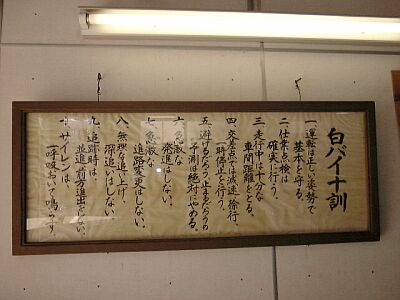 白バイ十訓
一、運転は正しい姿勢で
基本を守る。
二、仕業点検は
確実に行う。
三、走行中は十分な
車間距離をとる。
四、交差点では減速、徐行、
一時停止を行う。
五、避けるだろう、止まるだろうの
予測は絶対にやめる。
六、急激な
発進はしない。
七、急激な
進路変更はしない。
八、無理な追い上げ、
深追いはしない。
九、追跡時は、
並進、前方進出をしない。
十、サイレンは、
一呼吸おいて鳴らす。